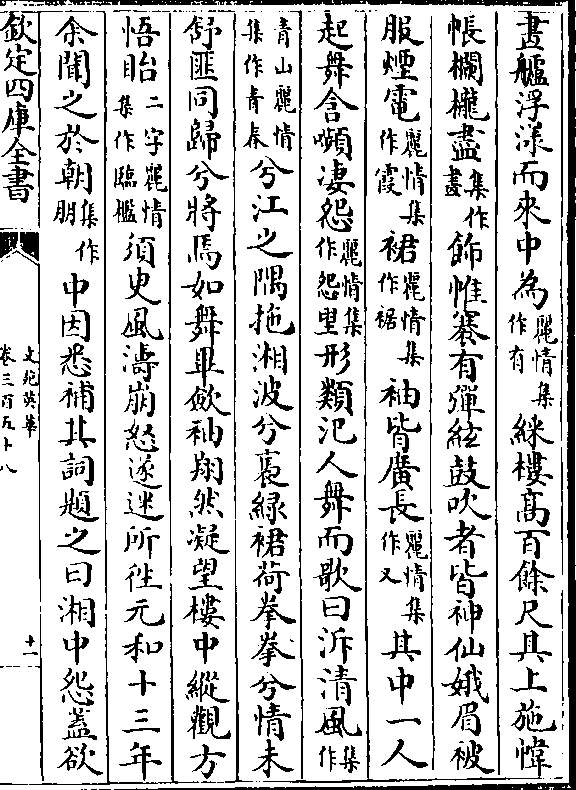 畫艫浮漾而來中為麗情集作有綵樓髙百餘尺其上施幃
帳欄櫳盡集作畫飾帷褰有彈絃鼓吹者皆神仙娥眉被
服煙電麗情集作霞裙麗情集作裾袖皆廣長麗情集作又其中一人
起舞含嚬凄怨麗情集作怨望形類氾人舞而歌曰泝清風集作
青山麗情集作青春兮江之隅拖湘波兮裛緑裙荷拳拳兮情未
舒匪同歸兮將焉如舞畢歛袖翔然凝望樓中縱觀方
悟眙二字麗情集作臨檻須史風濤崩怒遂迷所徃元和十三年
余聞之於朝集作朋中因悉補其詞題之曰湘中怨蓋欲
欽定四庫全書
文苑英華
卷三百五十八
十一